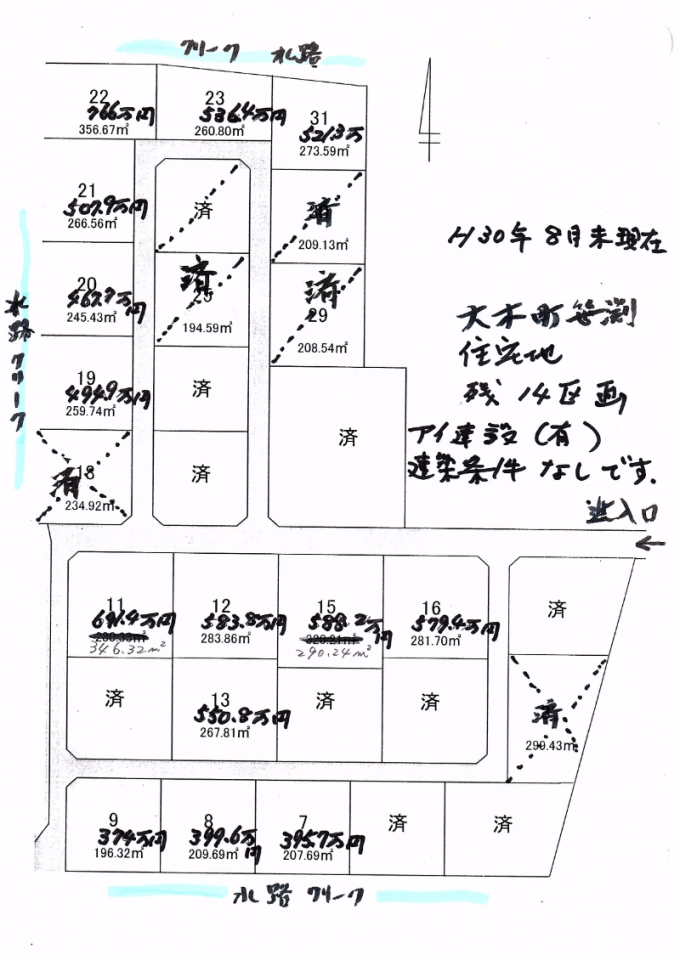 クリーク 水路
22
766万円
356.67㎡
23
536.4万円
260.80㎡
31
521.3万
273.59㎡
21
507.9万円
266.56㎡
済
済
209.13㎡
H30年 8月末現在
20
467.7万円
245.43㎡
済
25
194.59㎡
済
29
208.54㎡
大木町笹渕
住宅地
残 14区画
アイ建設(有)
建築条件なしです.
進入口
水路クリーク
19
494.9万円
259.74㎡
済
済
済
18
済
234.92㎡
11
691.4万円
280.33㎡
346.32m²
12
583.8万円
283.86㎡
15
588.2万円
328.21㎡
290.24m²
16
579.4万円
281.70㎡
済
済
13
550.8万円
267.81㎡
済
済
済
299.43㎡
9
374万円
196.32㎡
8
399.6万円
209.69㎡
7
395.7万円
207.69㎡
済
済
水路 クリーク